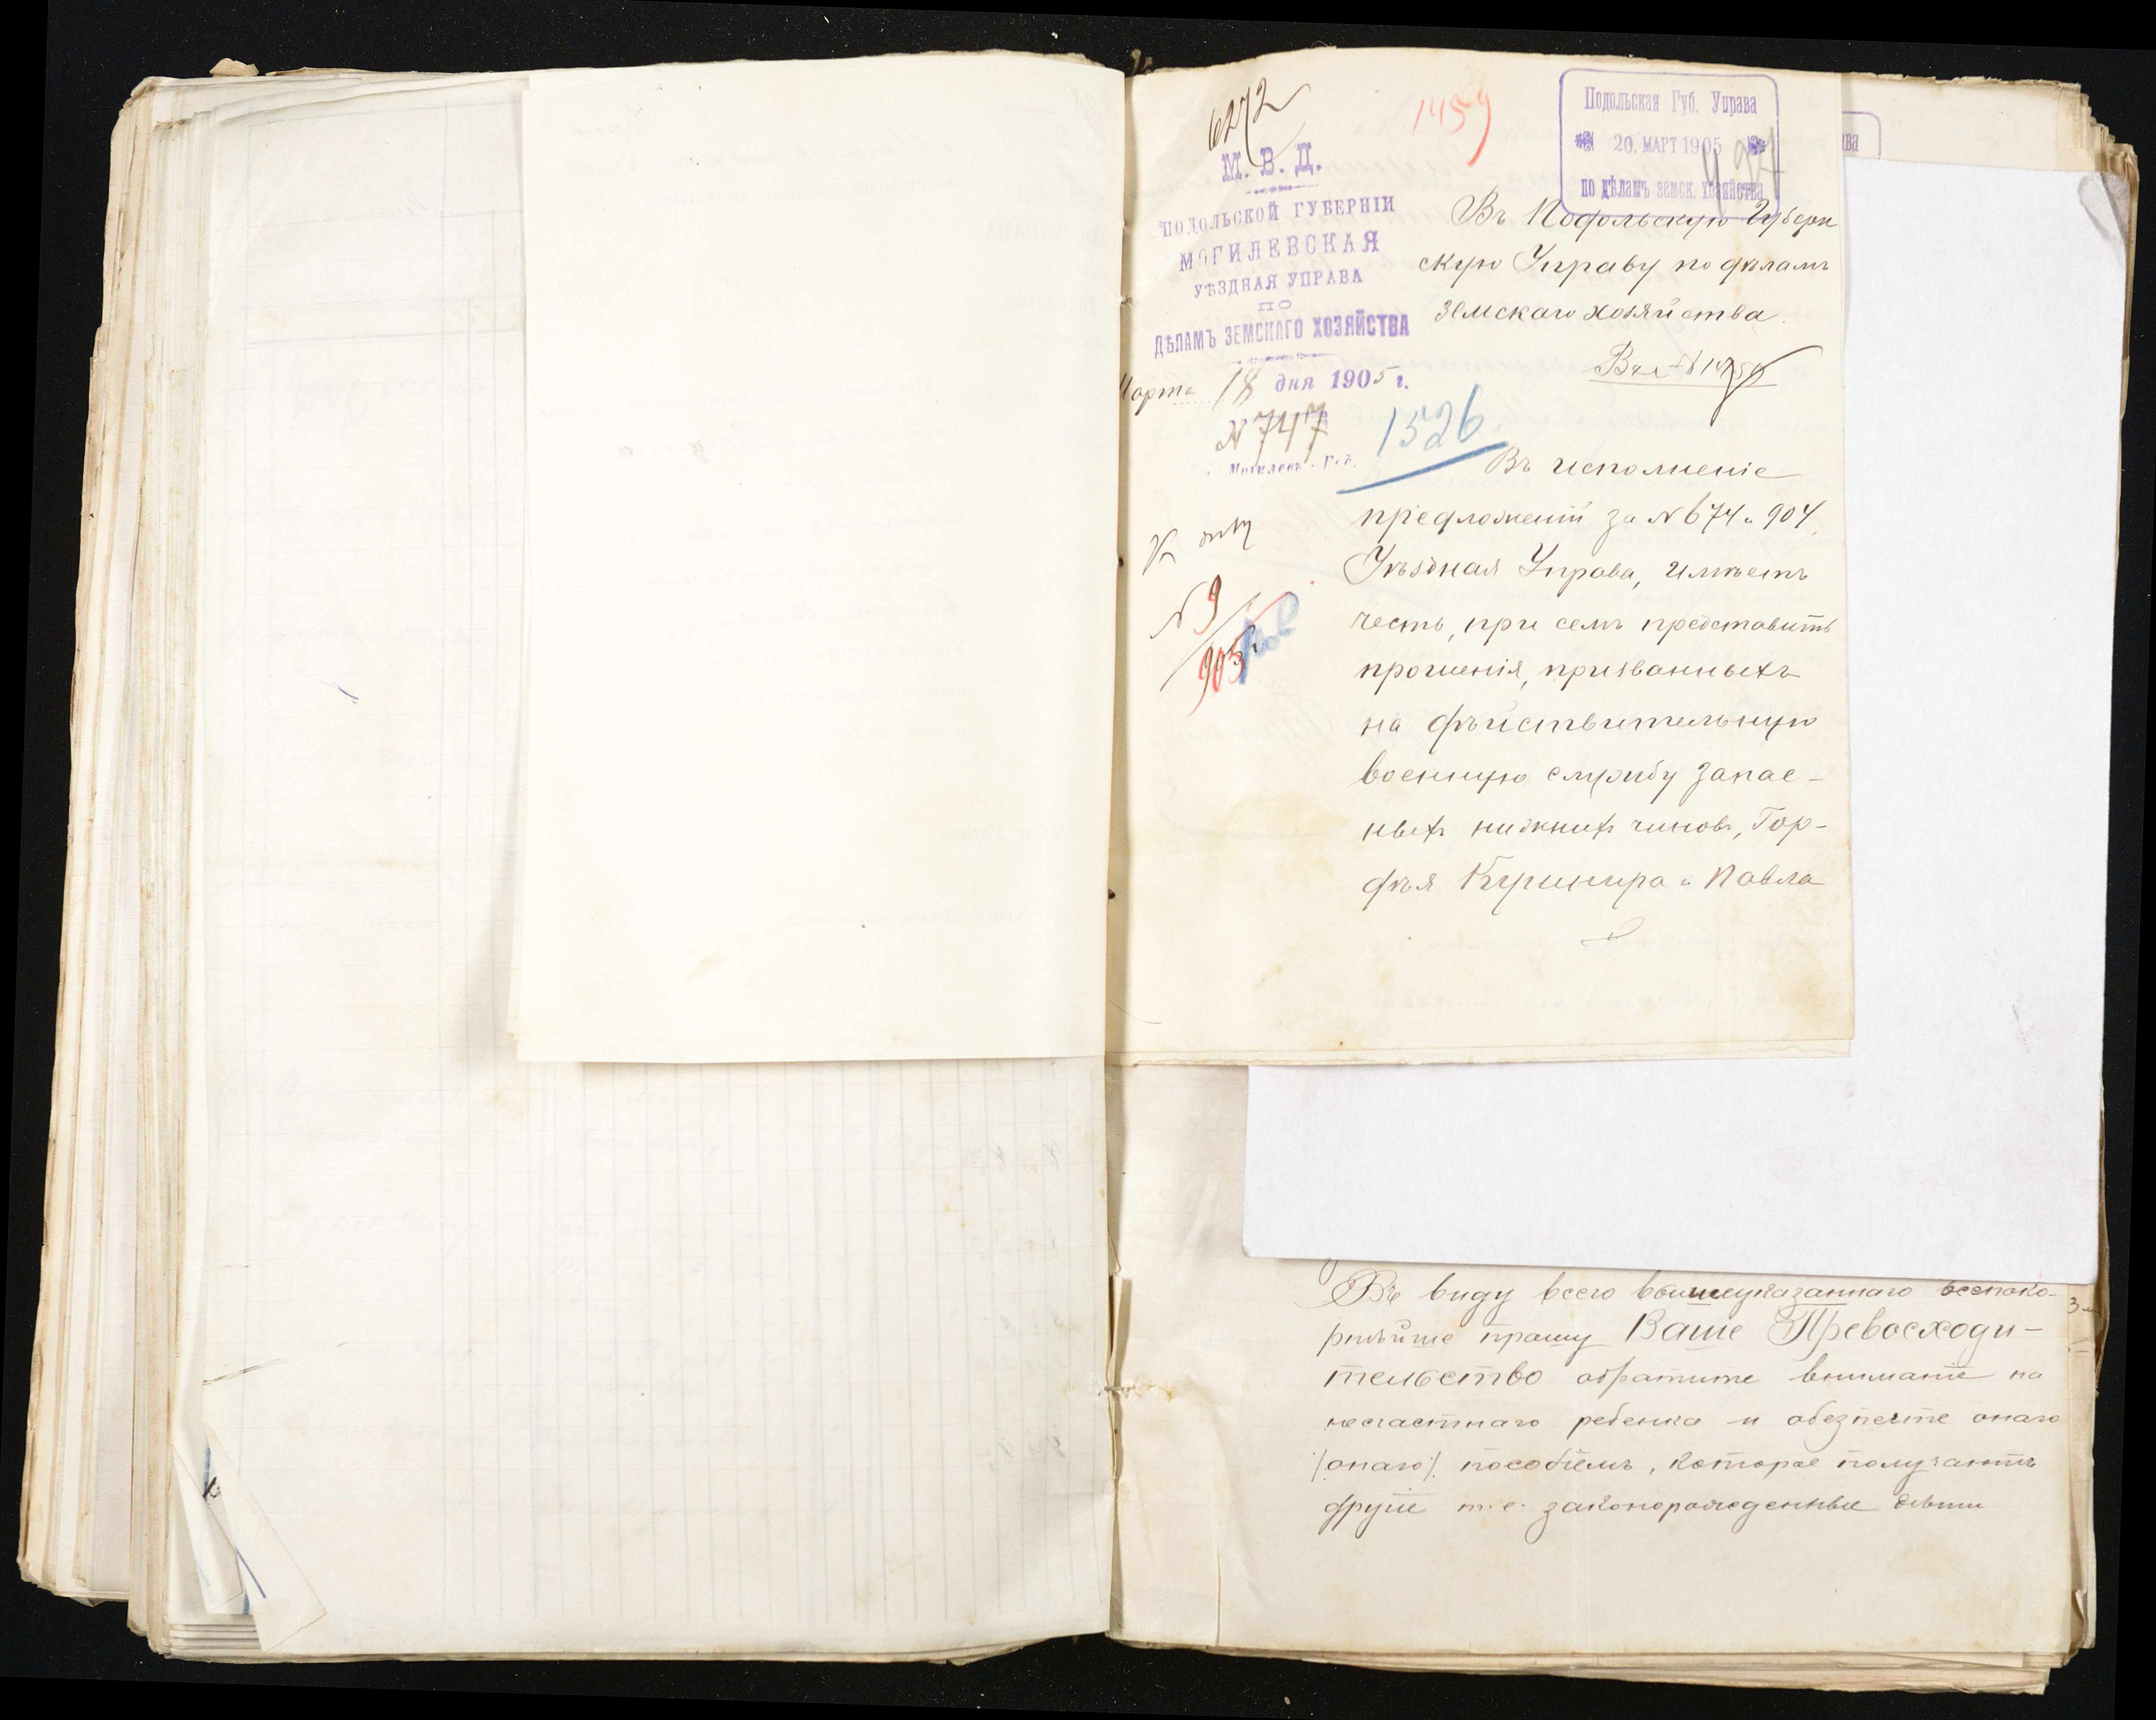 6272
1459
Подольская Губ. Управа
20. МАРТ 1905
по дѣламъ земск. хозяйства
М. В. Д.
ПОДОЛЬСКОЙ ГУБЕРНІИ
МОГИЛЕВСКАЯ
УѢЗДНАЯ УПРАВА
ПО
ДѢЛАМЪ ЗЕМСКАГО ХОЗЯЙСТВА
Марта 18 дня 1905 г.
N 747
1526
N 9
905
Въ Подольскую Губерн
скую Управу по дѣламъ
земскаго хозяйства.
Въ исполненіе
предложеній за N 674 и 904,
Уѣздная Управа, имѣетъ
честь, при семъ представить
прошенія, призванныхъ
на дѣйствительную
военную службу запас-
ныхъ нижнихъ чиновъ, Гор-
дѣя Кушнира и Павла
ва
Въ виду всего вышеуказаннаго всепоко-
рнѣйше прошу Ваше Превосходи-
тельство обратите вниманіе на
несчастнаго ребенка и обезпечте онаго
/онаго/ пособіемъ, которое получаютъ
другіе т. е. законорожденные дѣти